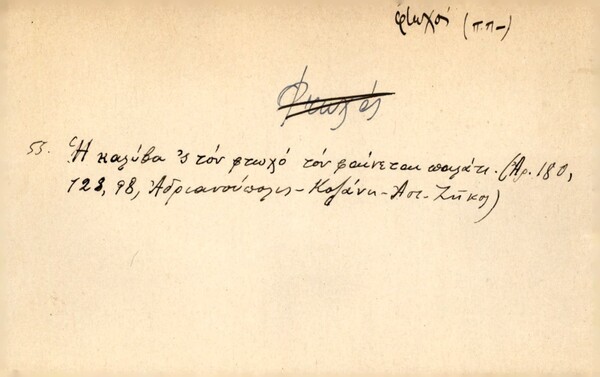 φτωχός (π.π-)
Φτωχός
53. Ἡ καλύβα 'ς τόν φτωχό τόν φαίνεται παλάτι. (Ἀρ. 180,
123, 98, Ἀδριανούπολις - Κοζάνη - Ἀστ. Ζήκος)